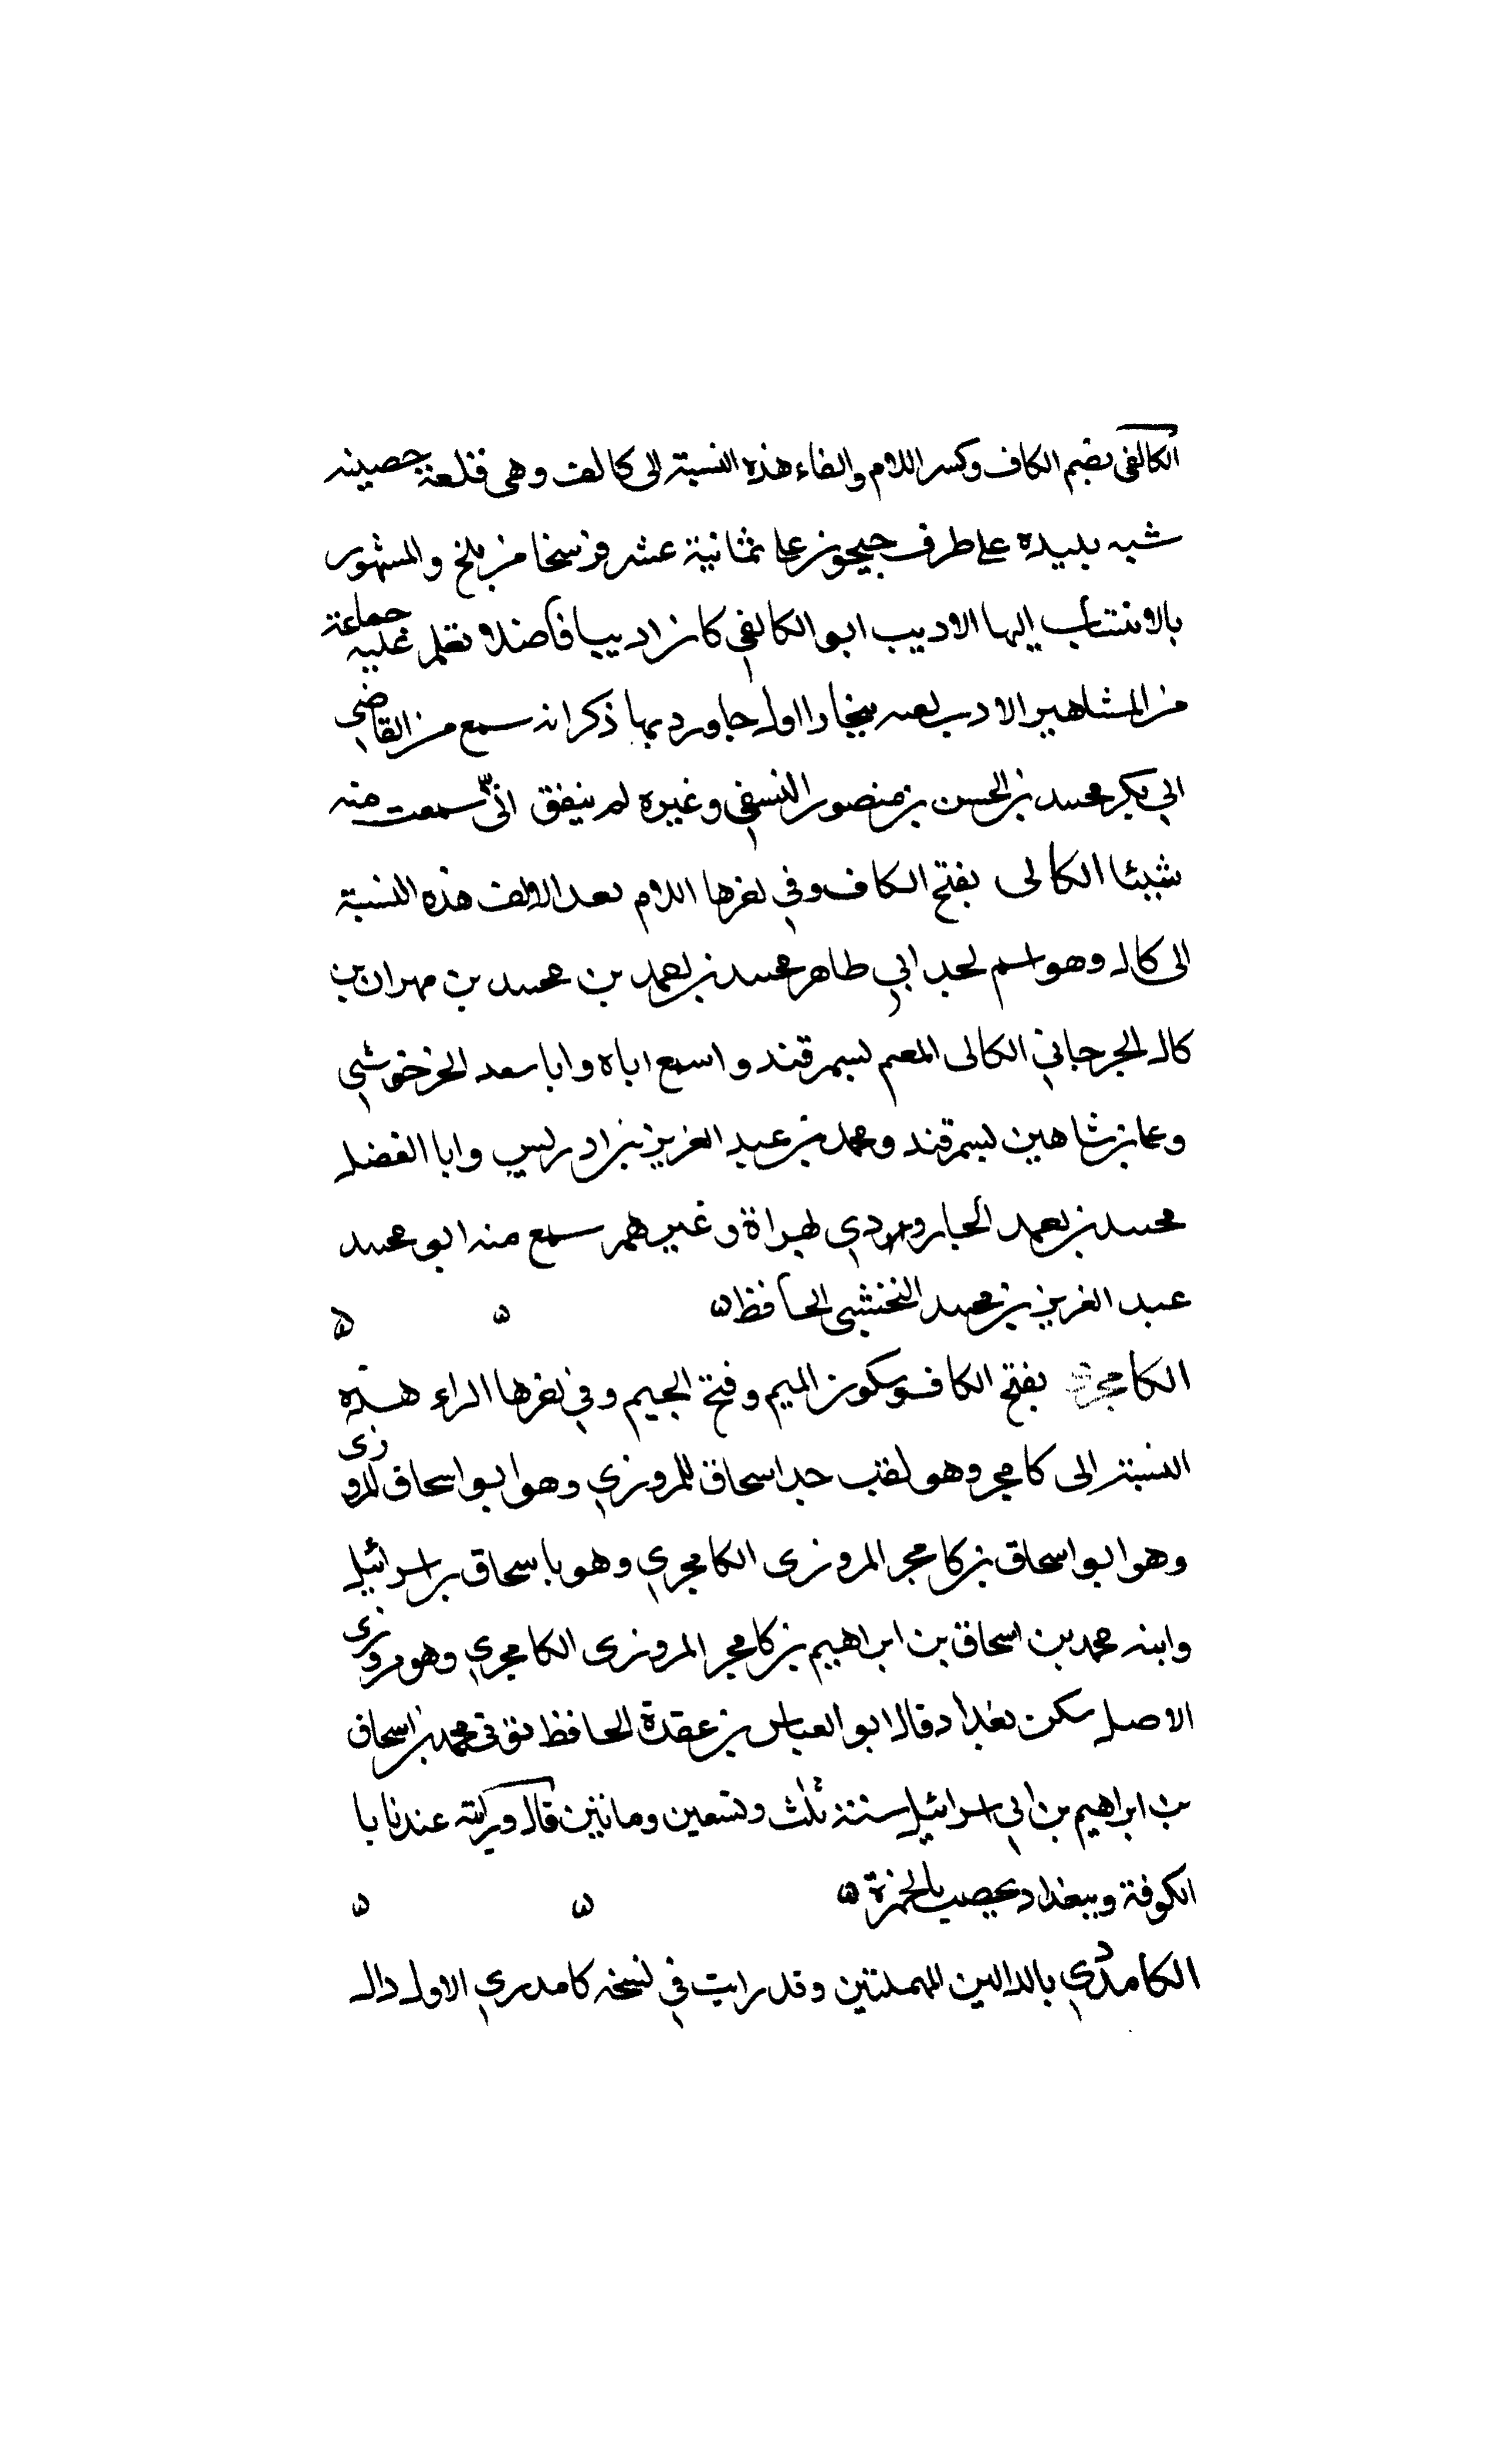 الكالفي بضم الكاف وكسر اللام والفاء هذه النسبة الى كالف وهى قلعة حصينه
شبه بليده على طرف جيحون على ثمانية عشر فرسخا من بلخ والمشهور
بالانتساب اليها الاديب ابو الكالفي كان اديبا فاضلا تعلم عليه جماعة
من المشاهير الادب ببخارا اول جاورد بها ذكر انه سمع من القاضي
ابي بكر محمد بن الحسن بن منصور النسفي وغيره لم يتفق اني سمعت منه
شيئا الكالى بفتح الكاف وفي اخرها اللام بعد الالف هذه النسبة
الى كال وهو اسم لجد ابي طاهر محمد بن احمد بن محمد بن مهران بن
كال الجرجاني الكالى المعم بسمرقند واسمع اباه وابا سعد الخرخوشي
وعما بن شاهين بسمرقند ومحمد بن عبد العزيز بن ادريس وابا الفضل
محمد بن احمد الجارودي بهراة وغيرهم سمع منه ابو محمد
عبد العزيز بن محمد النخشبى الحافظ ه ه ه
الكامجرى بفتح الكاف وسكون الميم وفتح الجيم وفي اخرها الراء هذه
النسبة الى كامجر وهو لقب جد اسحاق المروزي وهو ابو اسحاق المروزى
وهو ابو اسحاق بن كامجر المروزى الكامجري وهو با سحاق بن اسرائيل
وابنه محمد بن اسحاق بن ابراهيم بن كامجر المروزى الكامجري وهو مروزى
الاصل سكن بغداد قال ابو العباس بن عقدة الحافظ توفى محمد بن اسحاق
بن ابراهيم بن ابي اسرائيل سنة ثلث وتسعين ومائتين قال ورايته عندنا با
الكوفة وببغداد يخضب بالحمرة ه ه ه
الكامددي بالدالين المهملتين وقد رايت في نسخه كامدري الاول دال